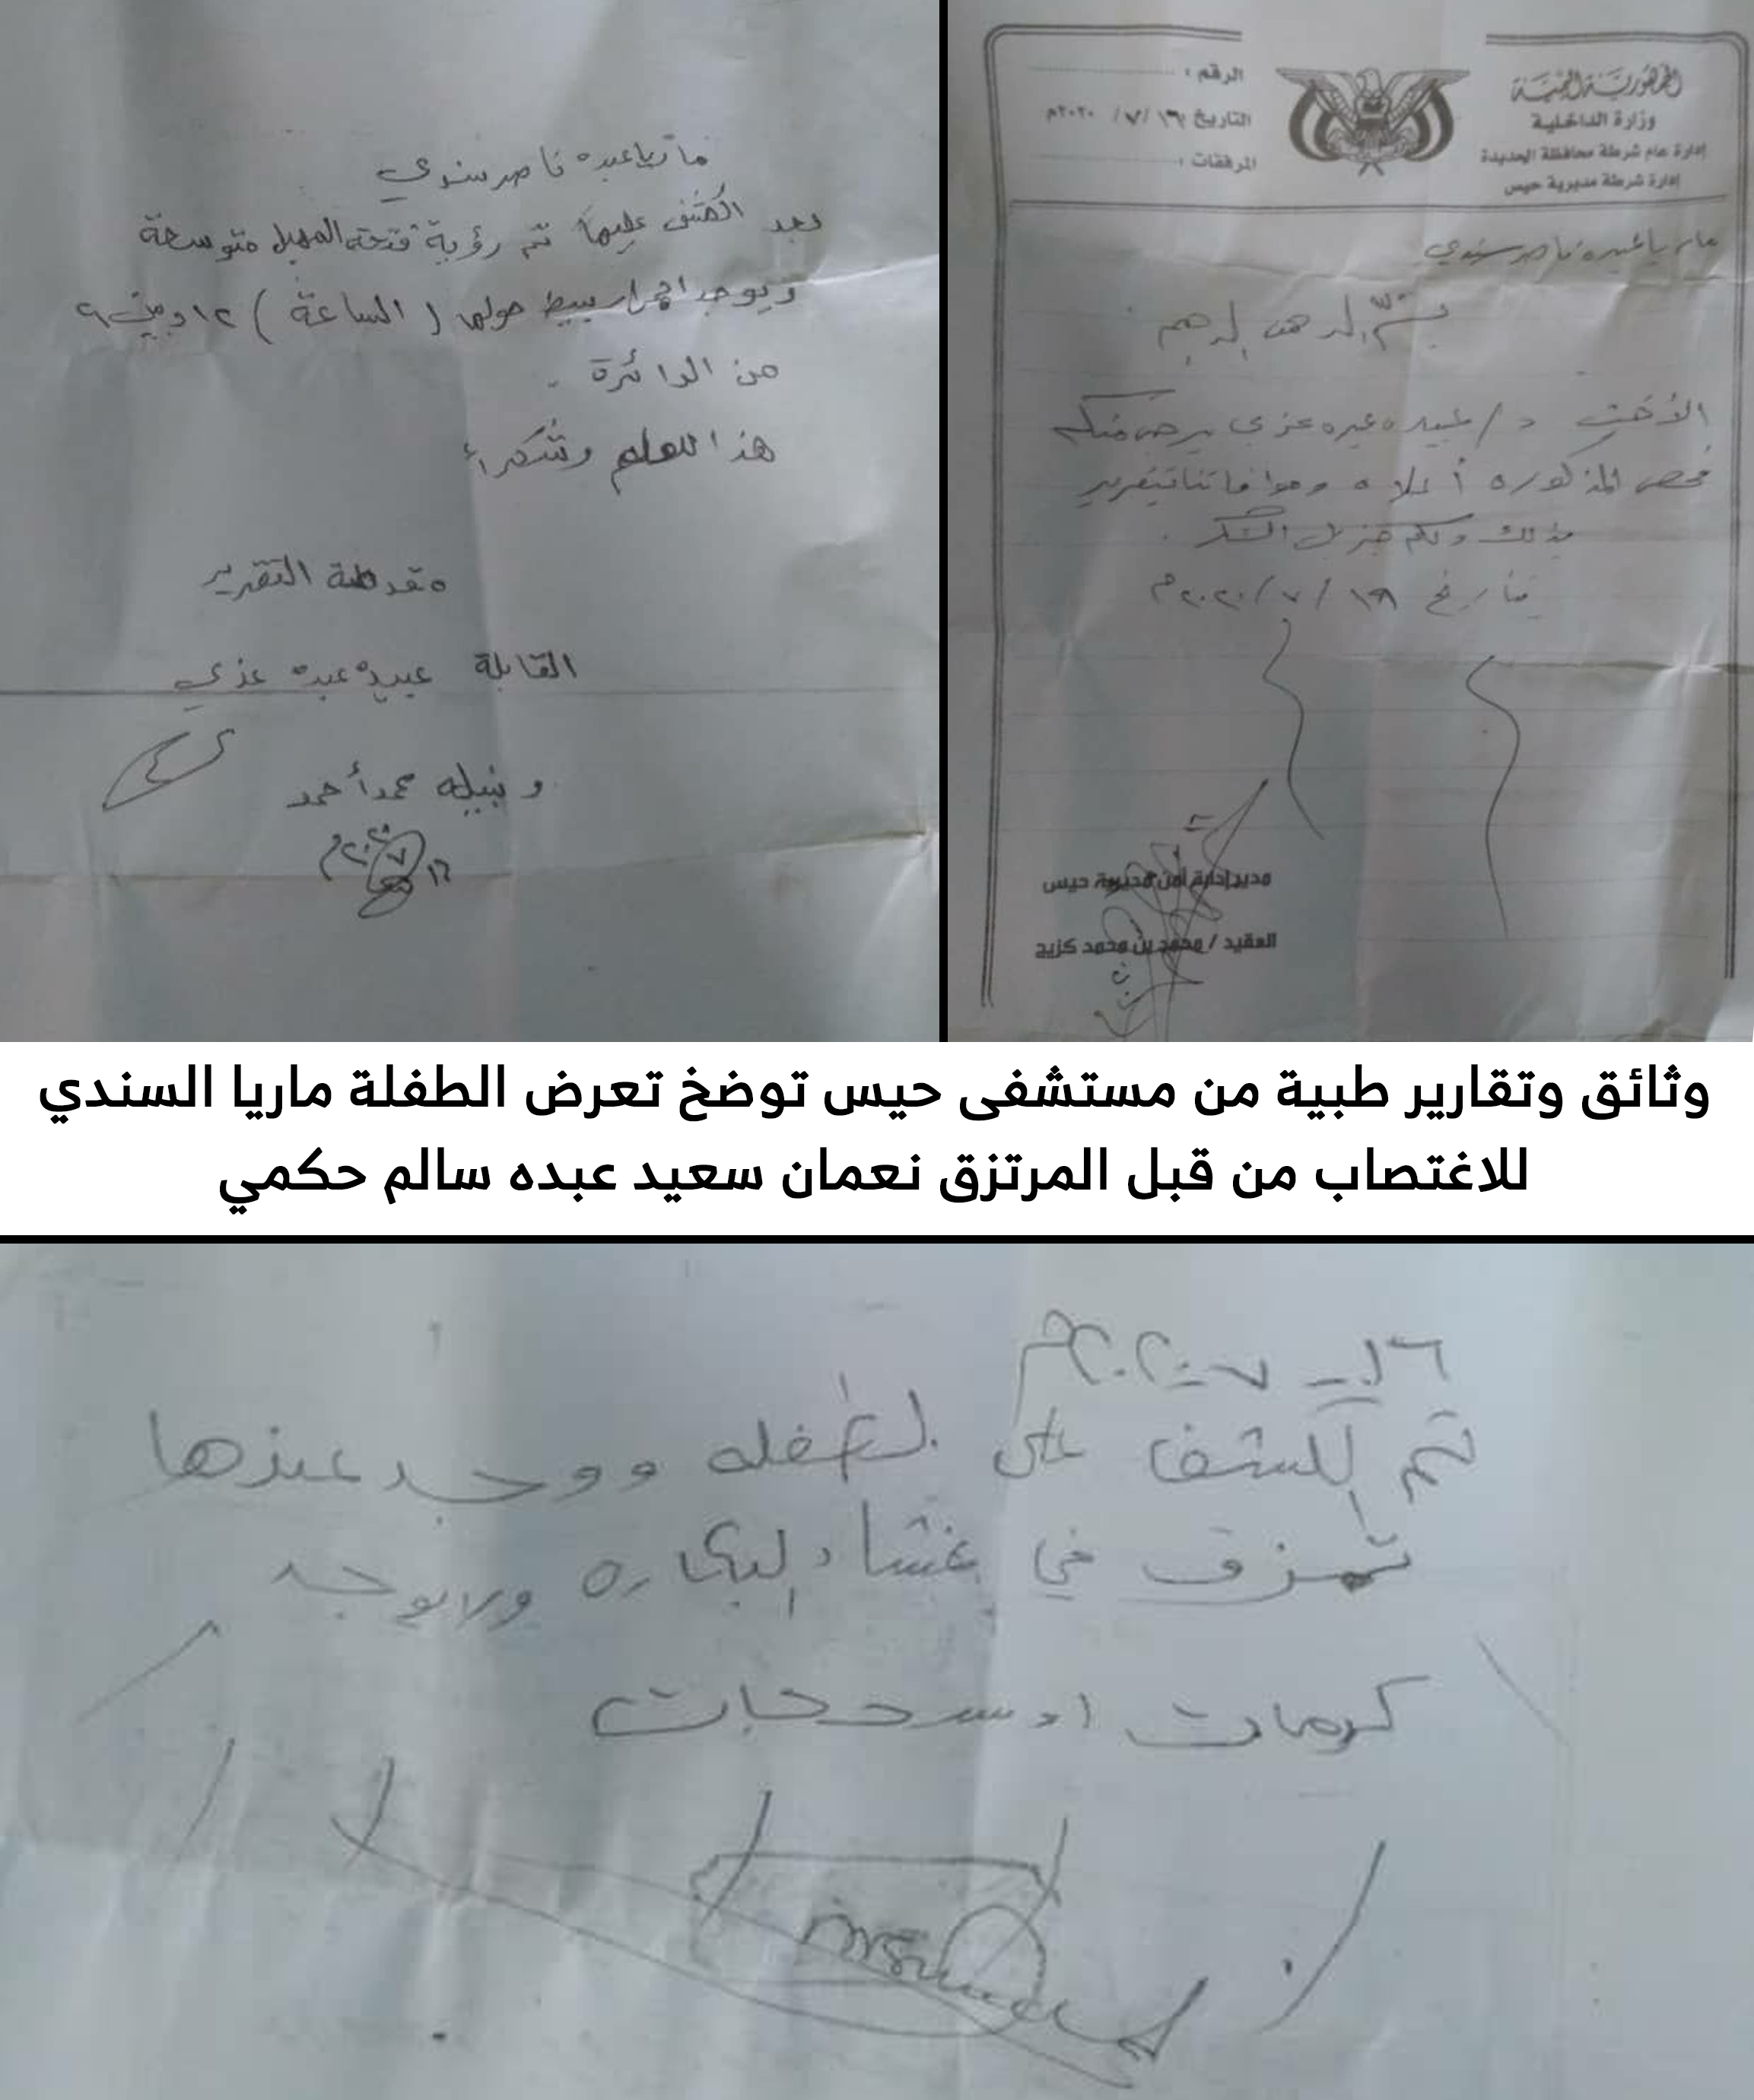 الجمهورية اليمنية
وزارة الداخلية
إدارة عام شرطة محافظة الحديدة
إدارة شرطة مديرية حيس
الرقم :
التاريخ ١٦ / ٧ / ٢٠٢٠م
المرفقات :
ماريا عبده ناصر سندي
بسم الله الرحمن الرحيم
الأخت د / عبيده عبده عزي يرجى منكم
فحص المذكوره أعلاه وموافاتنا بتقرير
بذلك ولكم جزيل الشكر .
بتاريخ / ٧ / ٢٠٢٠م
مدير إدارة أمن مديرية حيس
العقيد / محمد بن محمد كزيح
ماريا عبده ناصر سندي
بعد الكشف عليها تم رؤية فتحة المهبل متوسعة
ويوجد احمرار بسيط حولها ( الساعة ) ١٢ وبين ٩
من الدائرة .
هذا للعلم وشكراً
مقدمة التقرير
القابلة عبيده عبده عزي
و نبيله محمد أحمد
١٦ / ٧ / ٢٠٢٠م
وثائق وتقارير طبية من مستشفى حيس توضخ تعرض الطفلة ماريا السندي
للاغتصاب من قبل المرتزق نعمان سعيد عبده سالم حكمي
١٦ - ٧ - ٢٠٢٠م
تم الكشف على الطفله ووجد عندها
تمزق في غشاء البكاره ولا يوجد
كدمات او سحجات